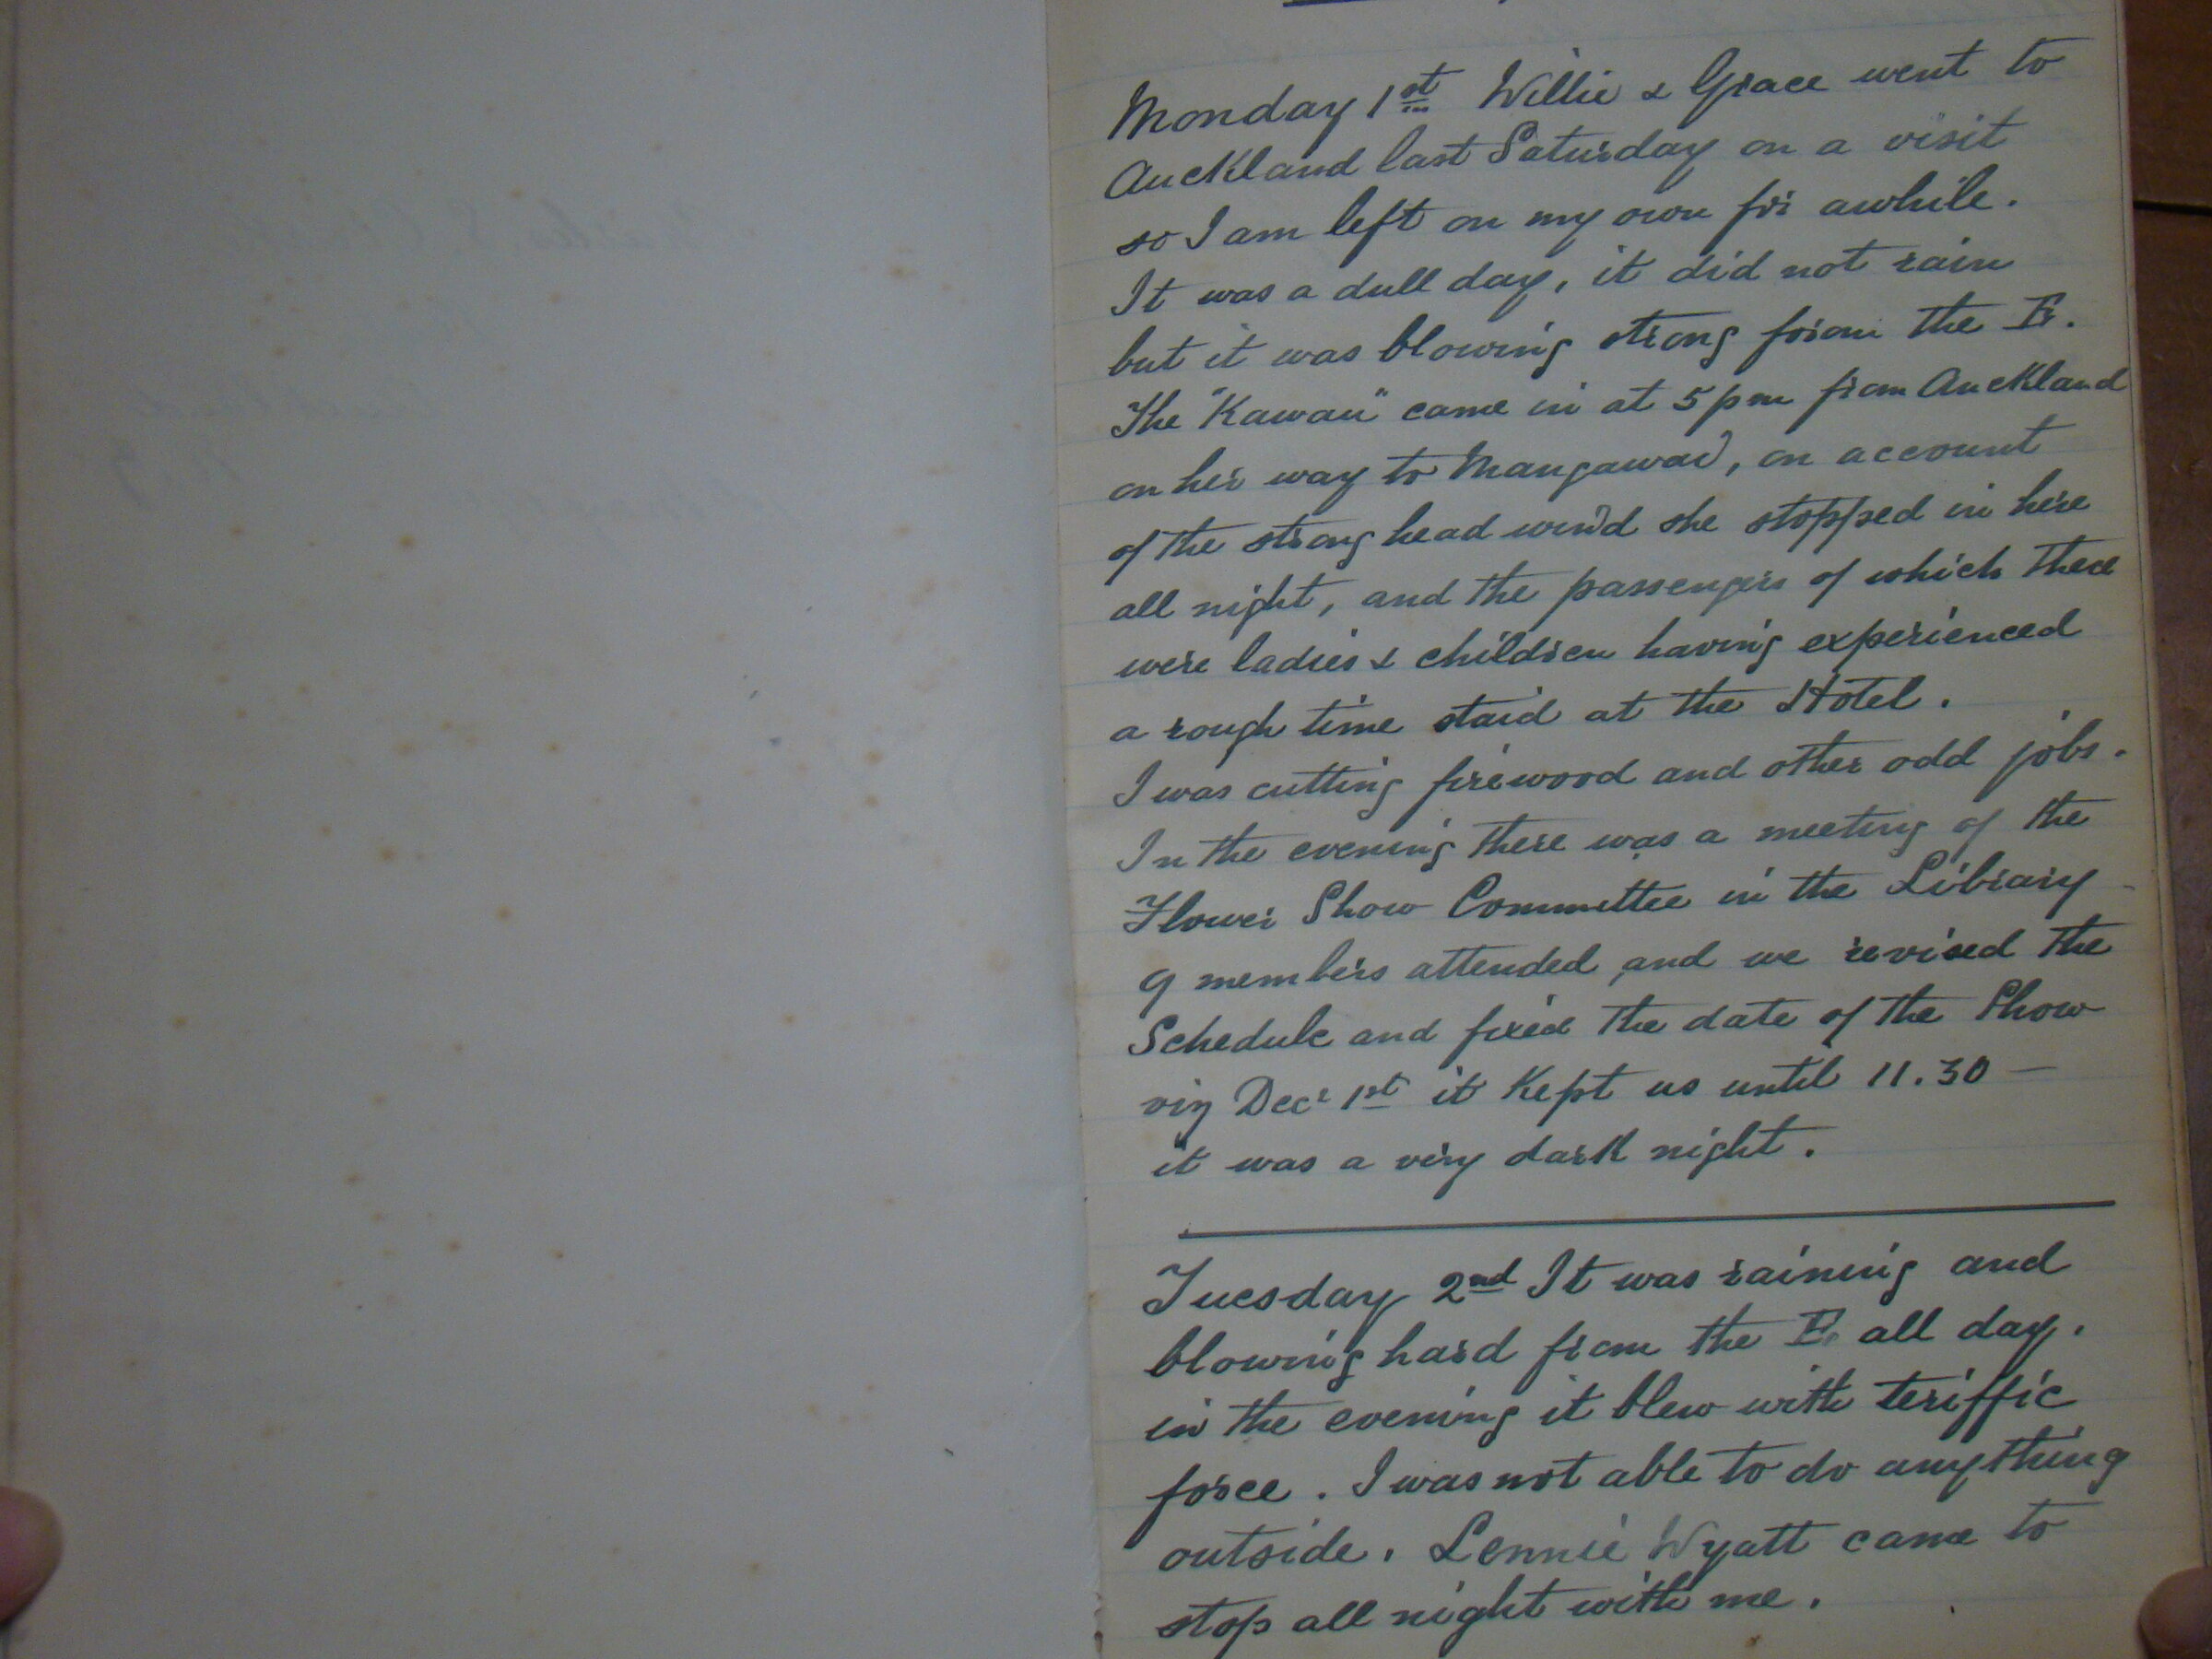 Monday 1st Willie & Grace went to
Auckland last Saturday on a visit
so I am left on my own for awhile.
It was a dull day, it did not rain
but it was blowing strong from the E.
The "Kawau" came in at 5 pm from Auckland
on her way to Mangawai, on account
of the strong head wind she stopped in here
all night, and the passengers of which there
were ladies & children having experienced
a rough time staid at the Hotel.
I was cutting firewood and other odd jobs.
In the evening there was a meeting of the
Flower Show Committee in the Library
9 members attended and we revised the
Schedule and fixed the date of the Show
viz Decr 1st it kept us until 11.30 —
it was a very dark night.
Tuesday 2nd It was raining and
blowing hard from the E. all day.
in the evening it blew with teriffic
force. I was not able to do anything
outside. Lennie Wyatt came to
stop all night with me.